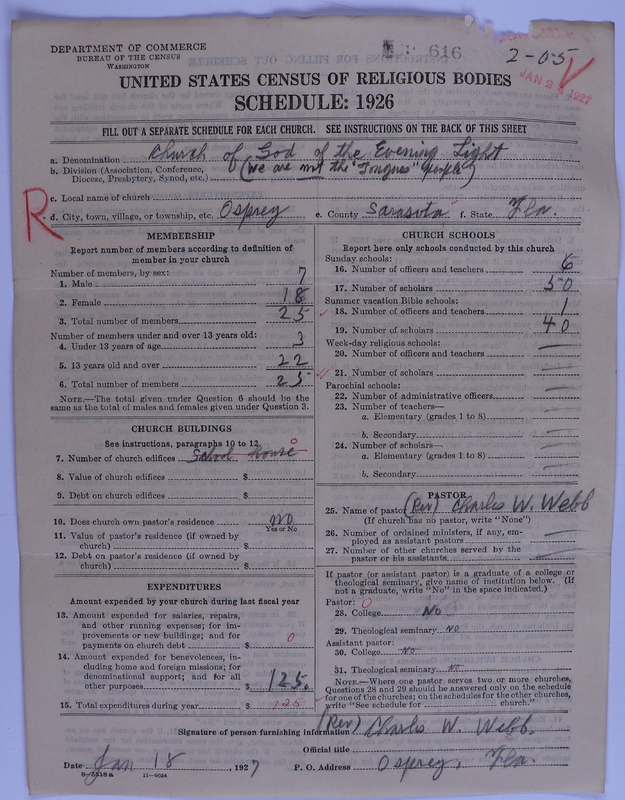 DEPARTMENT OF COMMERCE
BUREAU OF THE CENSUS
WASHINGTON
616
2-05
JAN 2 1927
UNITED STATES CENSUS OF RELIGIOUS BODIES
SCHEDULE: 1926
FILL OUT A SEPARATE SCHEDULE FOR EACH CHURCH. SEE INSTRUCTIONS ON THE BACK OF THIS SHEET
a. Denomination Church of God of the Evening Light
b. Division (Association, Conference, Diocese, Presbytery, Synod, etc.) (We are not the "Tongues" people)
c. Local name of church
R
d. City, town, village, or township, etc. Osprey e. County Sarasota f. State Fla.
MEMBERSHIP
Report number of members according to definition of
member in your church
Number of members, by sex:
1. Male 7
2. Female 18
3. Total number of members 25
Number of members under and over 13 years old:
4. Under 13 years of age 3
5. 13 years old and over 22
6. Total number of members 25
NOTE.—The total given under Question 6 should be
the same as the total of males and females given under Question 3.
CHURCH BUILDINGS
See instructions, paragraphs 10 to 12
7. Number of church edifices School house 0
8. Value of church edifices $
9. Debt on church edifices $
10. Does church own pastor's residence No
Yes or No
11. Value of pastor's residence (if owned by
church) $
12. Debt on pastor's residence (if owned by
church) $
EXPENDITURES
Amount expended by your church during last fiscal year
13. Amount expended for salaries, repairs,
and other running expenses; for im-
provements or new buildings; and for
payments on church debt $ 0
14. Amount expended for benevolences, in-
cluding home and foreign missions; for
denominational support; and for all
other purposes $ 125.
15. Total expenditures during year $ 125
CHURCH SCHOOLS
Report here only schools conducted by this church
Sunday schools:
16. Number of officers and teachers 6
17. Number of scholars 50
Summer vacation Bible schools:
18. Number of officers and teachers 1
19. Number of scholars 40
Week-day religious schools:
20. Number of officers and teachers
21. Number of scholars
Parochial schools:
22. Number of administrative officers
23. Number of teachers—
a. Elementary (grades 1 to 8)
b. Secondary
24. Number of scholars—
a. Elementary (grades 1 to 8)
b. Secondary
PASTOR
25. Name of pastor (Rev) Charles W. Webb
(If church has no pastor, write "None")
26. Number of ordained ministers, if any, em-
ployed as assistant pastors
27. Number of other churches served by the
pastor or his assistants
If pastor (or assistant pastor) is a graduate of a college or
theological seminary, give name of institution below. (If
not a graduate, write "No" in the space indicated.)
Pastor: 0
28. College No
29. Theological seminary No
Assistant pastor:
30. College No
31. Theological seminary No
NOTE.—Where one pastor serves two or more churches,
Questions 28 and 29 should be answered only on the schedule
for one of the churches; on the schedules for the other churches,
write "See schedule for church."
Signature of person furnishing information (Rev) Charles W. Webb.
Official title
Date Jan 18, 1927 P. O. Address Osprey, Fla.
8-5318a 11-9054